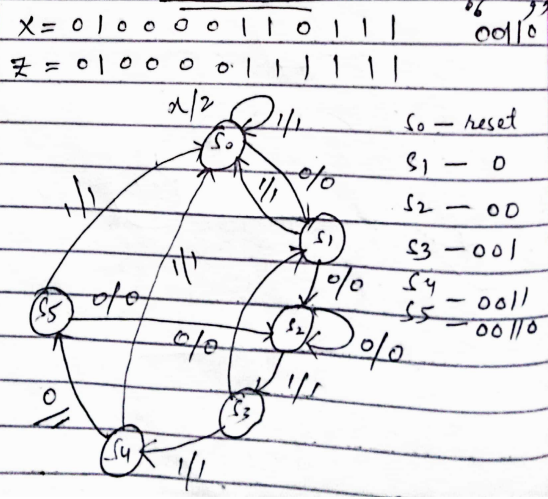 X = 0 1 0 0 0 0 0 1 1 0 1 1 1
00110
Z = 0 1 0 0 0 0 0 1 1 1 1 1 1
x/z
1/1
S0
S0 - reset
S1 - 0
S2 - 00
S3 - 001
S4 - 0011
S5 - 00110
0/0
1/1
1/1
1/1
S1
0/0
S5
0/0
S2
0/0
0/0
1/1
0
S3
S4
1/1